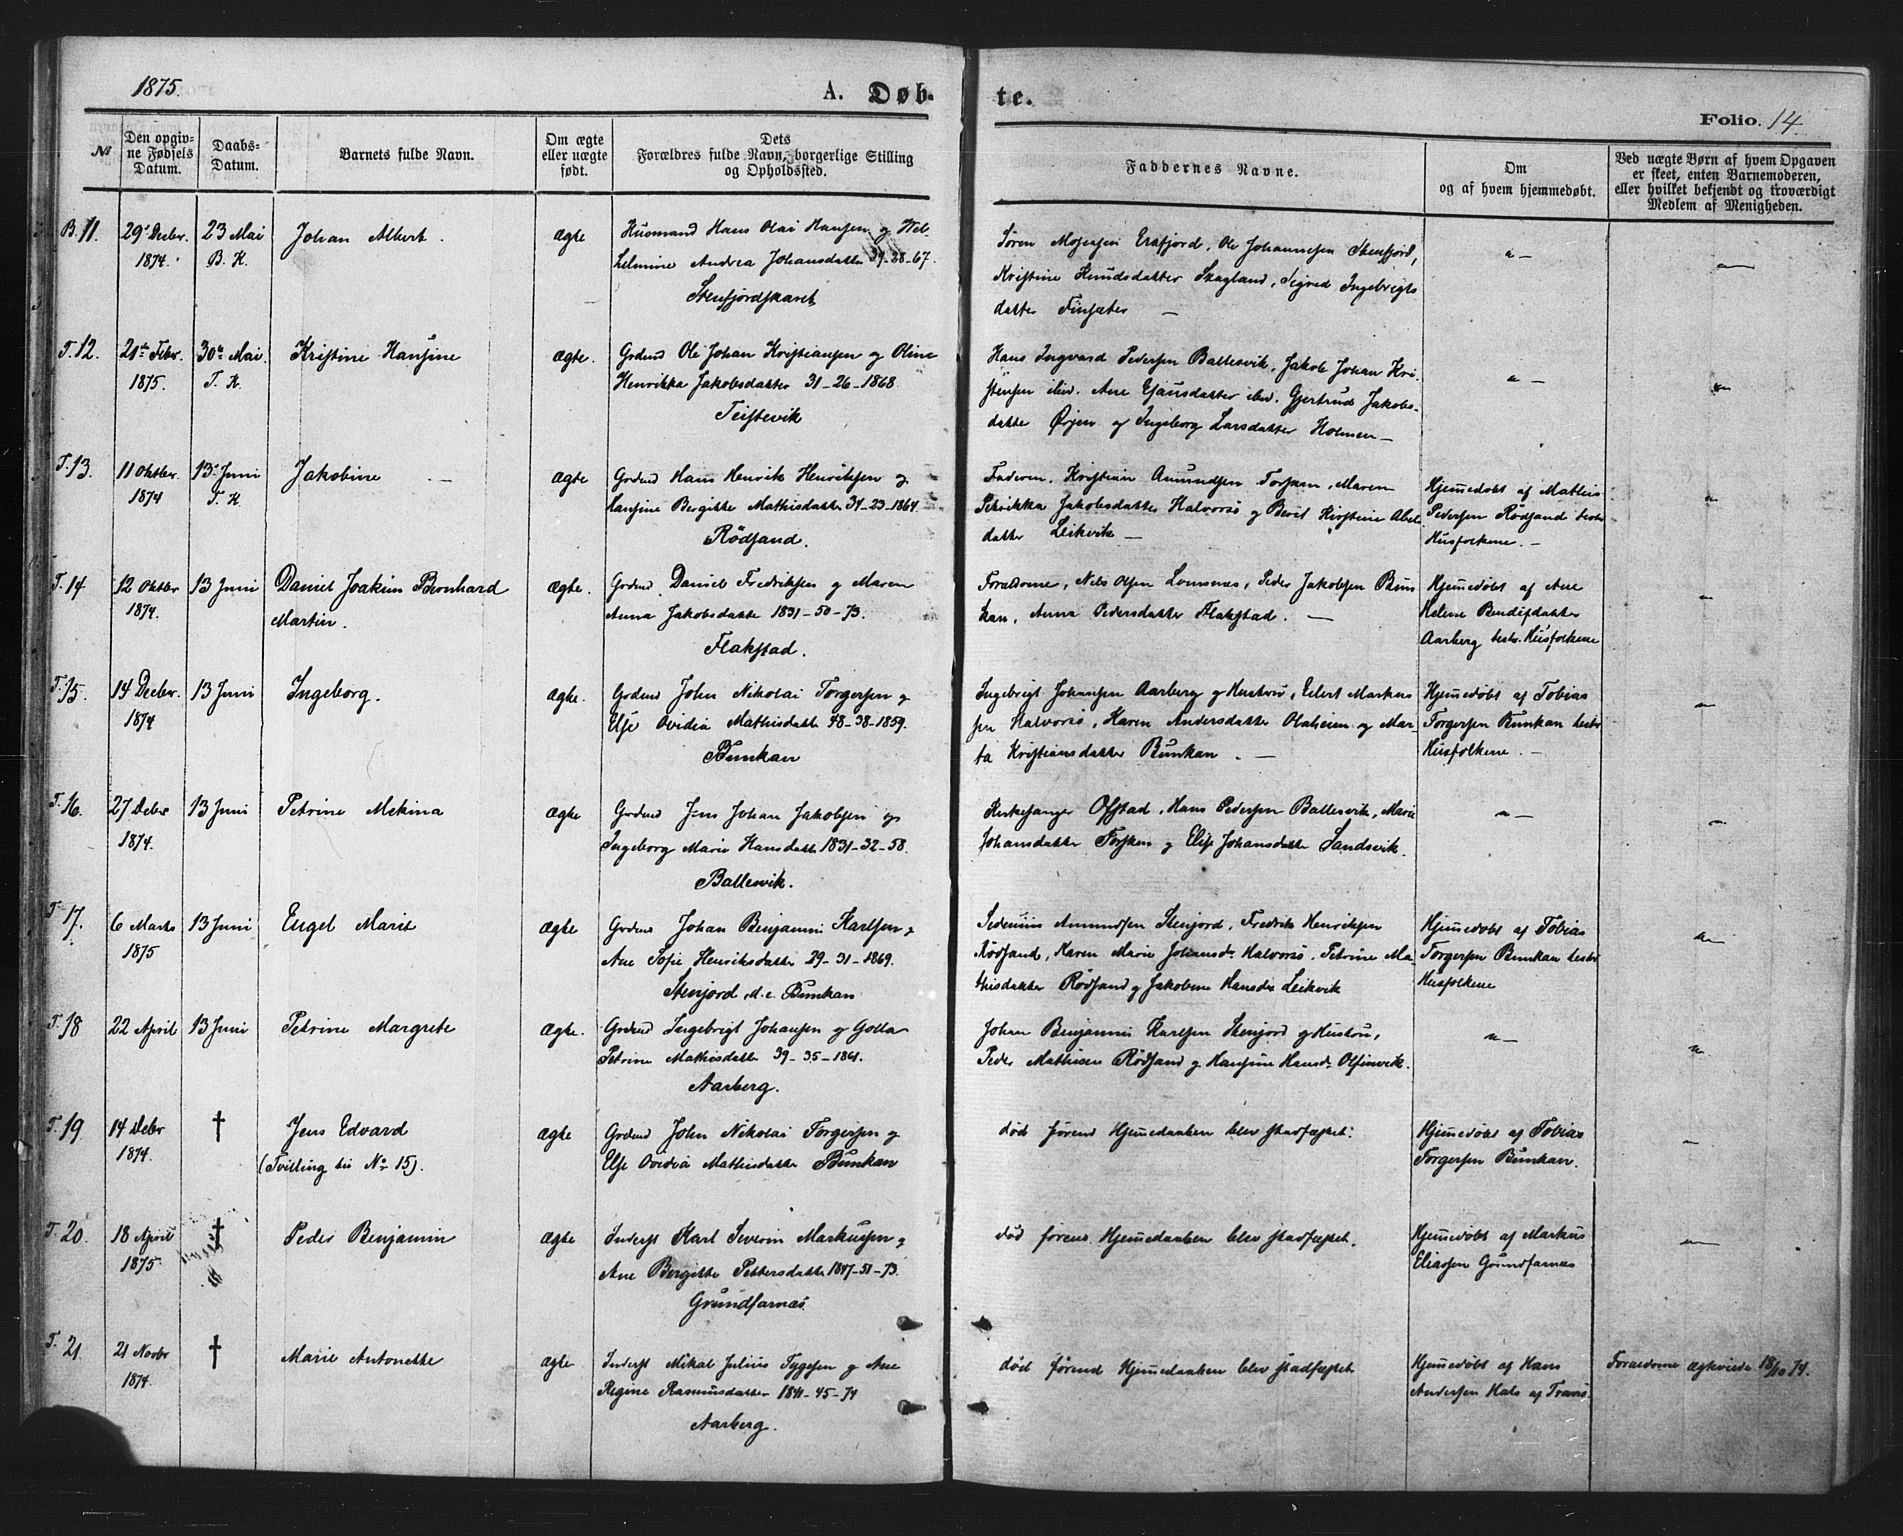 1875.
A. Døb-
te.
Folio. 14.
№
Den opgiv-
ne Fødsels
Datum.
Daabs-
Datum.
Barnets fulde Navn.
Om ægte
eller uægte
født.
Dets
Forældres fulde Navn, borgerlige Stilling
og Opholdssted.
Faddernes Navne.
Om
og af hvem hjemmedøbt.
Ved uægte Børn af hvem Opgaven
er skeet, enten Barnemoderen,
eller hvilket bekjendt og troværdigt
Medlem af Menigheden.
B. 11. 29de Decbr. 23 Mai Johan Albert. ægte Husmand Hans Olai Hansen og Wel-
1874. B. K. helmine Andrea Johansdatter 39-28-67.
Stenfjordskaret
Søren Mogensen Ersfjord, Ole Johannesen Stenfjord,
Kristine Knudsdatter Skagland, Sigrid Ingebrigts
datter Finsæter —
T. 12. 21de Febr. 30te Mai. Kristine Hansine ægte. Grdmd Ole Johan Kristiansen og Oline
1875. T. K. Henrikka Jakobsdatter 31-26-1868
Teistevik
Hans Ingvard Pedersen Ballesvik, Jakob Johan Kri-
stensen ibid. Ane Esausdatter ibid. Gjertrud Jakobs-
datter Ørjen og Ingeborg Larsdatter Holmen —
T. 13. 11 Oktbr 13de Juni Jakobine ægte Grdmd Hans Henrik Henriksen og
1874 T. K. Hansine Bergitte Mathisdatter 31-23-1864.
Rödsand.
Faderen, Kristian Amundsen Torsken, Maren
Petrikka Jakobsdatter Halvorsö og Berit Kirstine Abel
datter Leikvik —
Hjemmedøbt af Mathis
Pedersen Rödsand testr
Husfolkene. —
T. 14 12 Oktbr 13 Juni Daniel Joakim Bernhard ægte. Grdmd Daniel Fredriksen og Maren
1874. Martin. Anna Jakobsdatter 1831-50-73.
Flakstad.
Forældrene, Nils Olsen Lomsnes, Peder Jakobsen Bun
kan, Anna Pedersdatter Flakstad. —
Hjemmedøbt af Ane
Helene Bendiksdatter
Aarberg testr. Husfolkene
T. 15. 14 Decbr. 13 Juni Ingeborg. ægte. Grdmd John Nikolai Torgersen og
1874 Else Ovidia Mathisdatter 48-38-1859.
Bunkan
Ingebrigt Johansen Aarberg og Hustru, Edert Markus
sen Halvorsö, Karen Andersdatter Olaheim og Mar-
ta Kristiansdatter Bunkan. —
Hjemmedøbt af Tobias
Torgersen Bunkan testr
Husfolkene. —
T. 16. 27 Decbr 13 Juni Petrine Mekina ægte Grdmd Jens Johan Jakobsen og
1874. Ingeborg Marie Hansdatter 1831-32-58.
Ballesvik.
Kirkesanger Ofstad, Hans Pedersen Ballesvik, Marie
Johansdatter Torsken og Elise Johansdatter Sandsvik.
T. 17. 6 Marts 13 Juni Engel Marie ægte Grdmd Johan Benjamin Karlsen og
1875 Ane Sofie Henriksdatter 29-31-1869.
Stenjord, d. e. Bunkan
Amundsen Stenjord, Fredrik Henriksen
Rödsand, Karen Marie Johansdr Halvorsö, Petrine Ma
thisdatter Rödsand og Jakobine Hansdr Leikvik
Hjemmedøbt af Tobias
Torgersen Bunkan testr
Husfolkene
T. 18 22 April 13 Juni Petrine Margrete ægte. Grdmd Ingebrigt Johansen og Golla
Petrine Mathisdatter 39-35-1861.
Aarberg.
Johan Benjamin Karlsen Stenjord og Hustru,
Peder Mathisen Rödsand og Hansine Hansdr Olfinvik.
T. 19 14 Decbr † Jens Edvard ægte Grdmd John Nikolai Torgersen og
1874. (Tvilling til No 15). Else Ovidia Mathisdatter Bunkan
død førend Hjemmedaaben blev stadfæstet.
Hjemmedøbt af Tobias
Torgersen Bunkan.
T. 20. 18 April † Peder Benjamin ægte Inderst Karl Severin Markussen og
1875. Ane Bergitte Pettersdatter 1847-51-73.
Grundfarnes
død førend Hjemmedaaben blev stadfæstet.
Hjemmedøbt af Markus
Eliassen Grundfarnes
T. 21 21 Novbr † Marie Antonette ægte Inderst Mikal Julius Tygesen og Ane
1874. Regine Rasmusdatter 1841-45-74
Aarberg.
død førend Hjemmedaaben blev stadfæstet
Hjemmedøbt af Hans
Andersen Hals af Tranö.
Forældrene ægteviede 18/10 74.